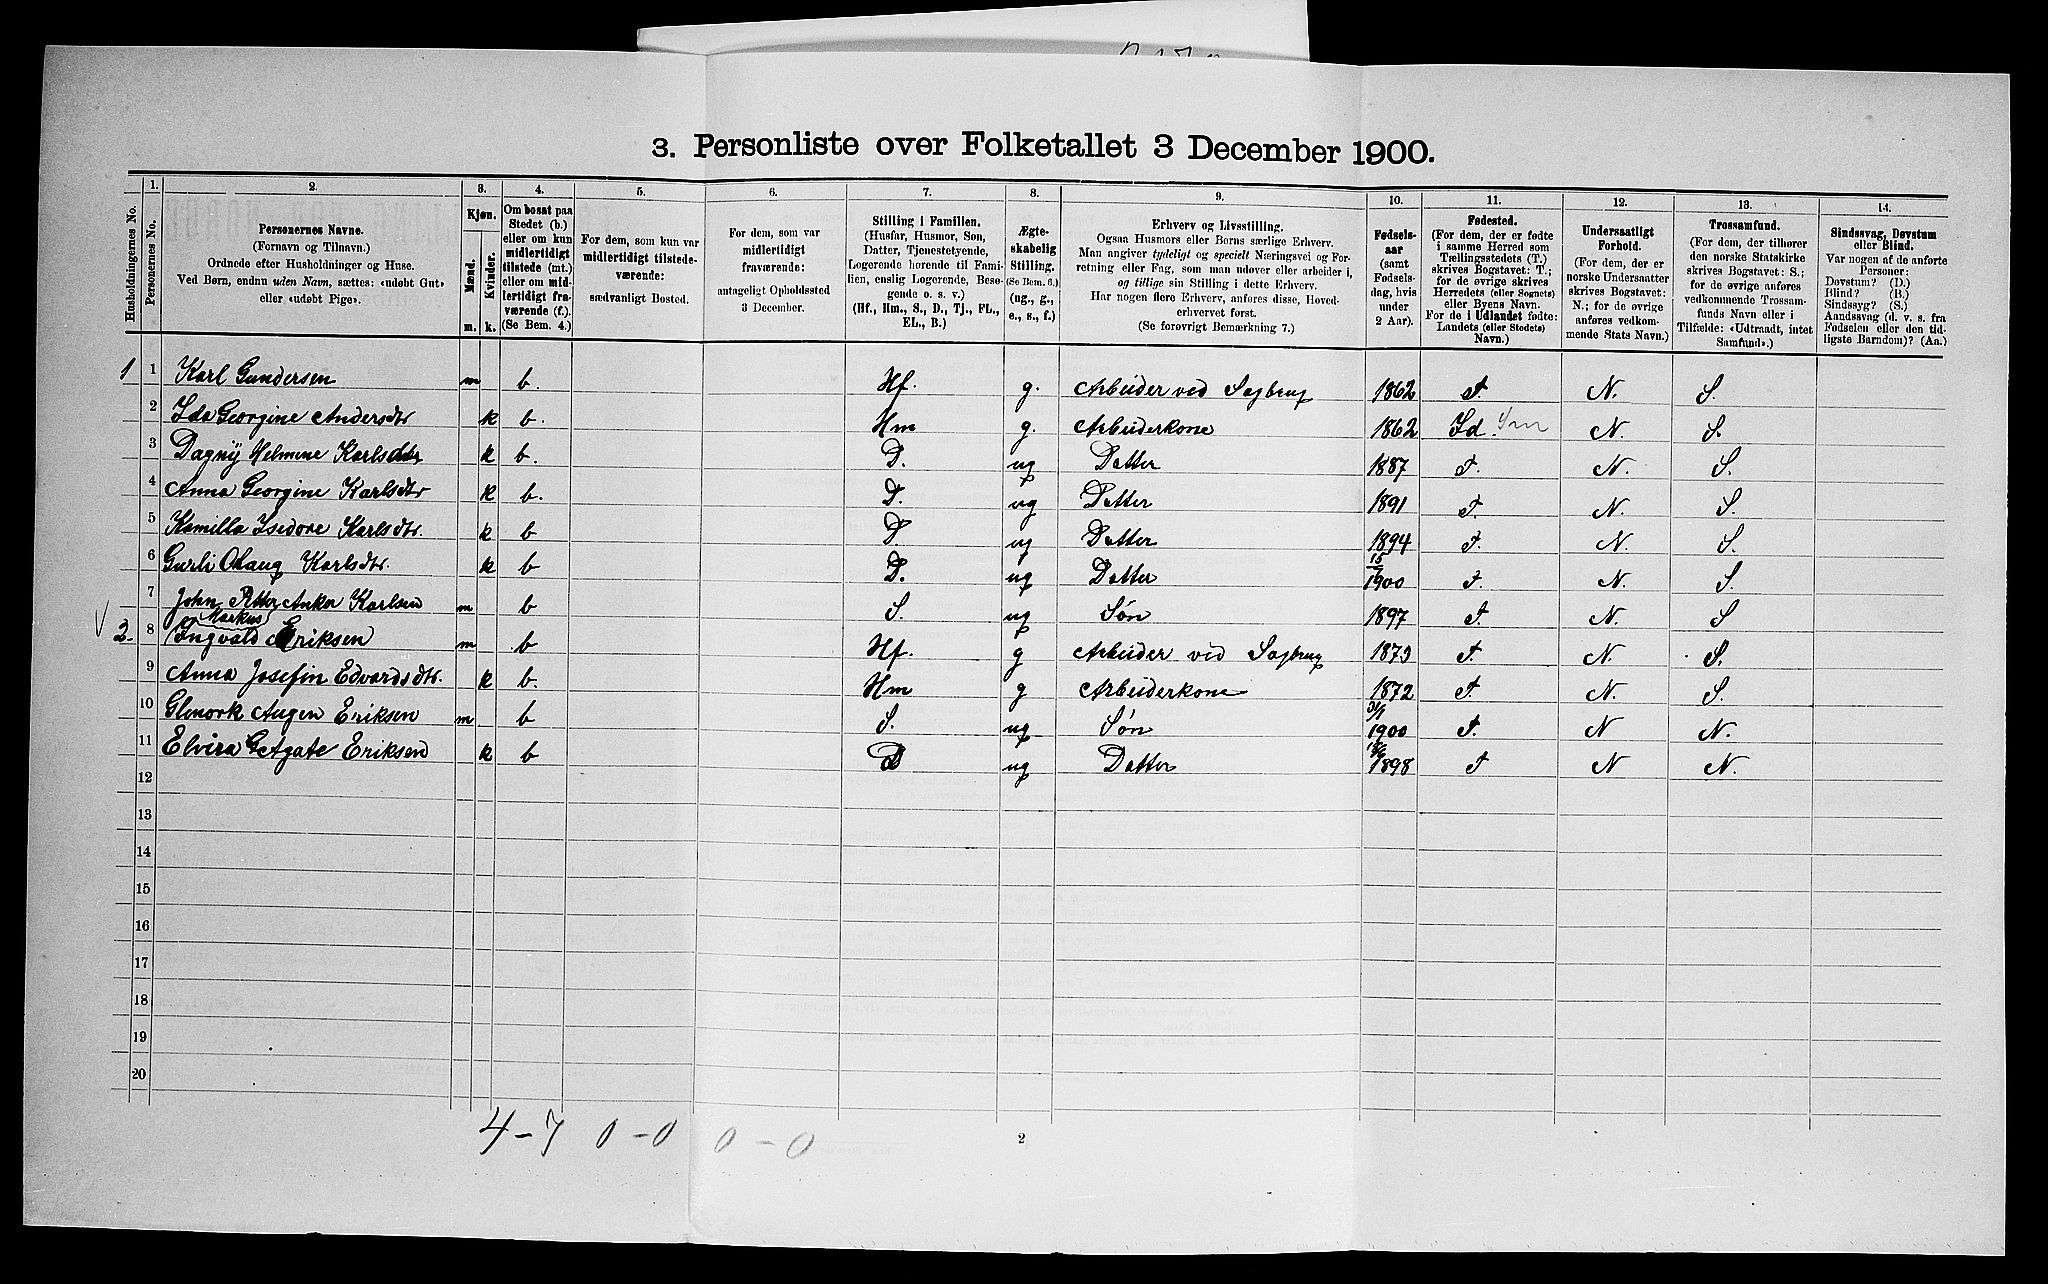 3. Personliste over Folketallet 3 December 1900.
Husholdningernes No.
1. Personernes No.
2. Personernes Navne.
(Fornavn og Tilnavn.)
Ordnede efter Husholdninger og Huse.
Ved Børn, endnu uden Navn, sættes: «udøbt Gut»
eller «udøbt Pige».
3. Kjøn.
Mænd. Kvinder.
m. k.
4. Om bosat paa
Stedet (b.)
eller om kun
midlertidigt
tilstede (mt.)
eller om mid-
lertidigt fra-
værende (f.).
(Se Bem. 4.)
5. For dem, som kun var
midlertidigt tilstede-
værende:
sædvanligt Bosted.
6. For dem, som var
midlertidigt
fraværende:
antageligt Opholdssted
3 December.
7. Stilling i Familien.
(Husfar, Husmor, Søn,
Datter, Tjenestetyende,
Logerende hørende til Fami-
lien, enslig Logerende, Besø-
gende o. s. v.)
(Hf., Hm., S., D., Tj., FL.,
EL., B.)
8. Ægte-
skabelig
Stilling.
(Se Bem. 6.)
(ug., g.,
e., s., f.)
9. Erhverv og Livsstilling.
Ogsaa Husmors eller Børns særlige Erhverv.
Man angiver tydeligt og specielt Næringsvei og For-
retning eller Fag, som man udøver eller arbeider i,
og tillige sin Stilling i dette Erhverv.
Har nogen flere Erhverv, anføres disse, Hoved-
erhvervet først.
(Se forøvrigt Bemærkning 7.)
10. Fødsels-
aar
(samt
Fødsels-
dag, hvis
under
2 Aar).
11. Fødested.
(For dem, der er fødte
i samme Herred som
Tællingsstedets (T.)
skrives Bogstavet: T.;
for de øvrige skrives
Herredets (eller Sognets)
eller Byens Navn.
For de i Udlandet fødte:
Landets (eller Stedets)
Navn.)
12. Undersaatligt
Forhold.
(For dem, der er
norske Undersaatter
skrives Bogstavet:
N.; for de øvrige
anføres vedkom-
mende Stats Navn.)
13. Trossamfund.
(For dem, der tilhører
den norske Statskirke
skrives Bogstavet: S.;
for de øvrige anføres
vedkommende Trossam-
funds Navn eller i
Tilfælde: «Udtraadt, intet
Samfund».)
14. Sindssvag, Døvstum
eller Blind.
Var nogen af de anførte
Personer:
Døvstum? (D.)
Blind? (B.)
Sindssyg? (S.)
Aandssvag (d. v. s. fra
Fødselen eller den tid-
ligste Barndom)? (Aa.)
1 1 Karl Gundersen m b. Hf. g. Arbeider ved Sagbrug 1862 T. N. S.
2 Ida Georgine Andersdtr k b. Hm g. Arbeiderkone 1862 Id. N. S.
3 Dagny Helmine Karlsdtr k b. D. ug Datter 1887 T. N. S.
4 Anna Georgine Karlsdtr k b. D. ug Datter 1891 T. N. S.
5 Kamilla Isedore Karlsdtr. k b D. ug Datter 1894 T. N. S.
6 Gurli Olaug Karlsdtr. k b D. ug Datter 1900 T. N. S.
7 John Petter Anker Karlsen m b S. ug Søn 1897 T. N. S
Markus
2. 8 Ingvald Eriksen m b Hf. g Arbeider ved Sagbrug 1873 T. N. S.
9 Anna Josefin Edvardsdtr. k b. Hm g Arbeiderkone 1872 T. N. S.
10 Glenork Augen Eriksen m b S. ug Søn 1900 T. N N.
11 Elvira Agate Eriksen k b D ug Datter 1898 T N N.
12
13
14
15
16
17
18
19
20
4-7 0-0 0-0
2